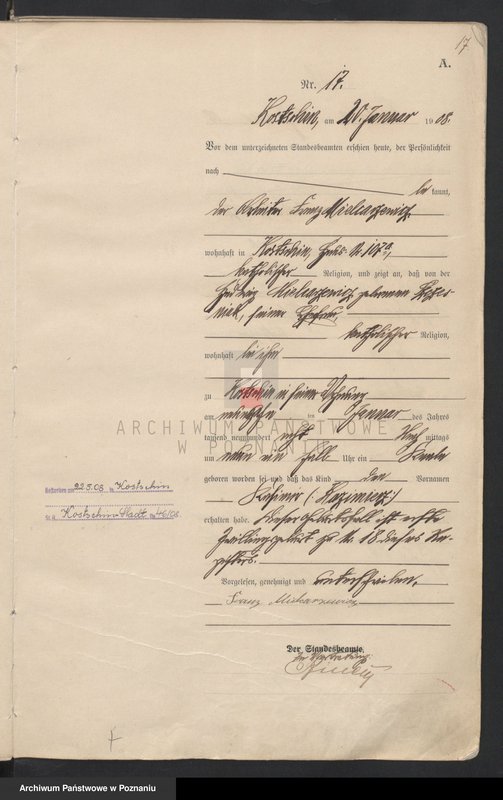 17
A.
Nr. 17.
Kostschin, am 20. Januar 1908.
Vor dem unterzeichneten Standesbeamten erschien heute, der Persönlichkeit
nach bekannt,
der Arbeiter Franz
wohnhaft in Kostschin, Haus Nr. 107a,
katholischer Religion, und zeigt an, daß von der
Hedwig geborenen
seiner Ehefrau,
katholischer Religion,
wohnhaft bei ihm
zu Kostschin in seiner Wohnung
am im Januar des Jahres
tausend neunhundert acht mittags
um neun ein halb Uhr ein Knabe
geboren worden sei und daß das Kind den Vornamen
Kasimir (Kazimierz)
erhalten habe. Dieser Geburtsfall ist erste
Zwillingsgeburt zu Nr. 18 dieses Re-
gisters.
Vorgelesen, genehmigt und unterschrieben.
Franz
Der Standesbeamte.
In Vertretung:
Gestorben am 22.5.08 in Kostschin
Kostschin Stadt
ARCHIWUM PAŃSTWOWE
W POZNANIU
Archiwum Państwowe w Poznaniu